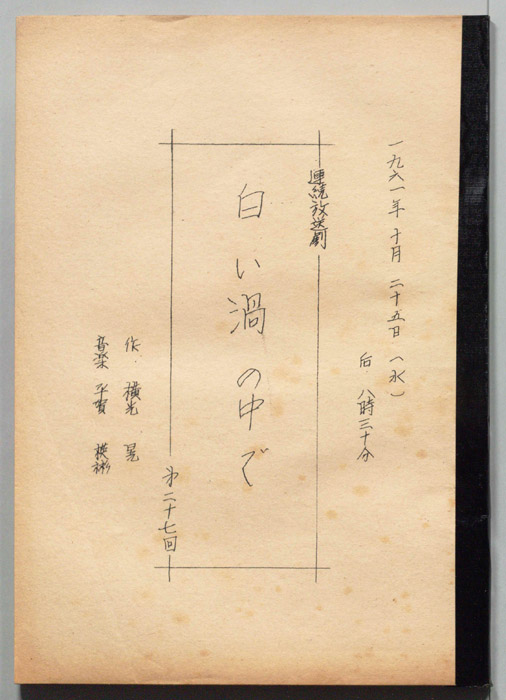 一九六一年 十月 二十五日 (水)
后 八時三十分
連続放送劇
白い渦の中で
第二十七回
作 横光 晃
音楽 平賀